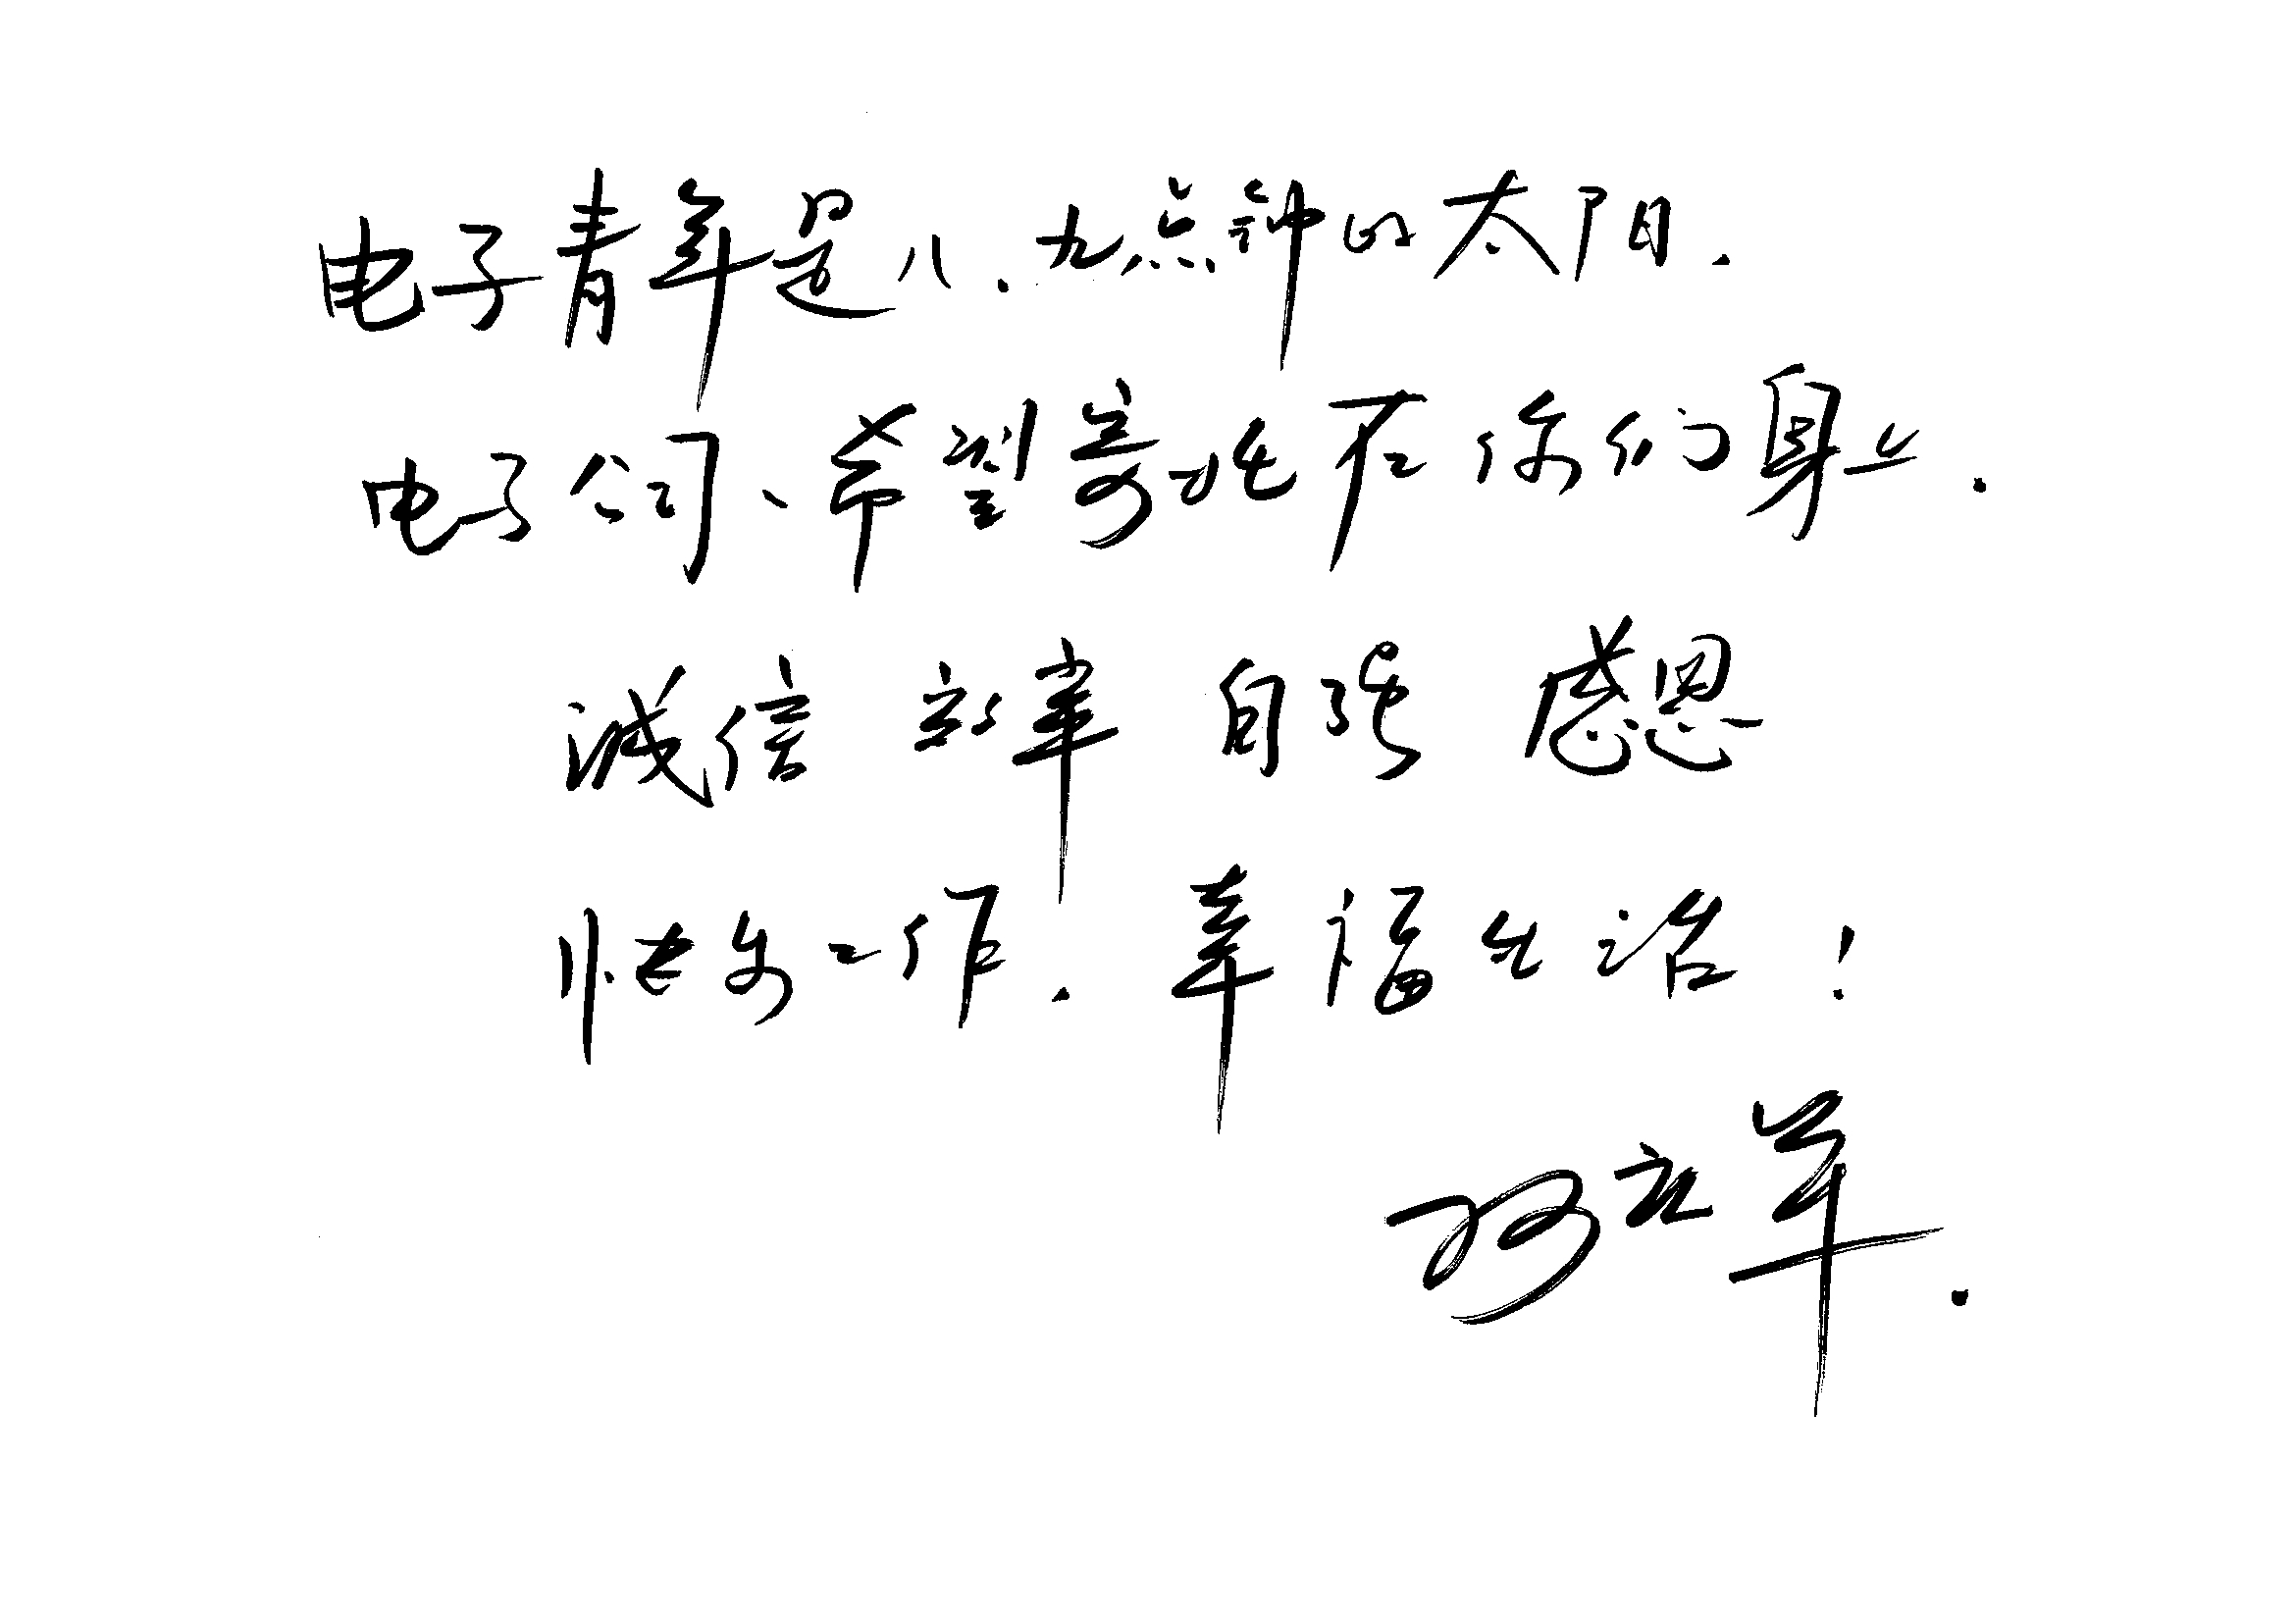 电子青年是八.九点钟的太阳.
电子公司、希望寄托在你们身上.
诚信 效率 自强 感恩
快乐工作.幸福生活!